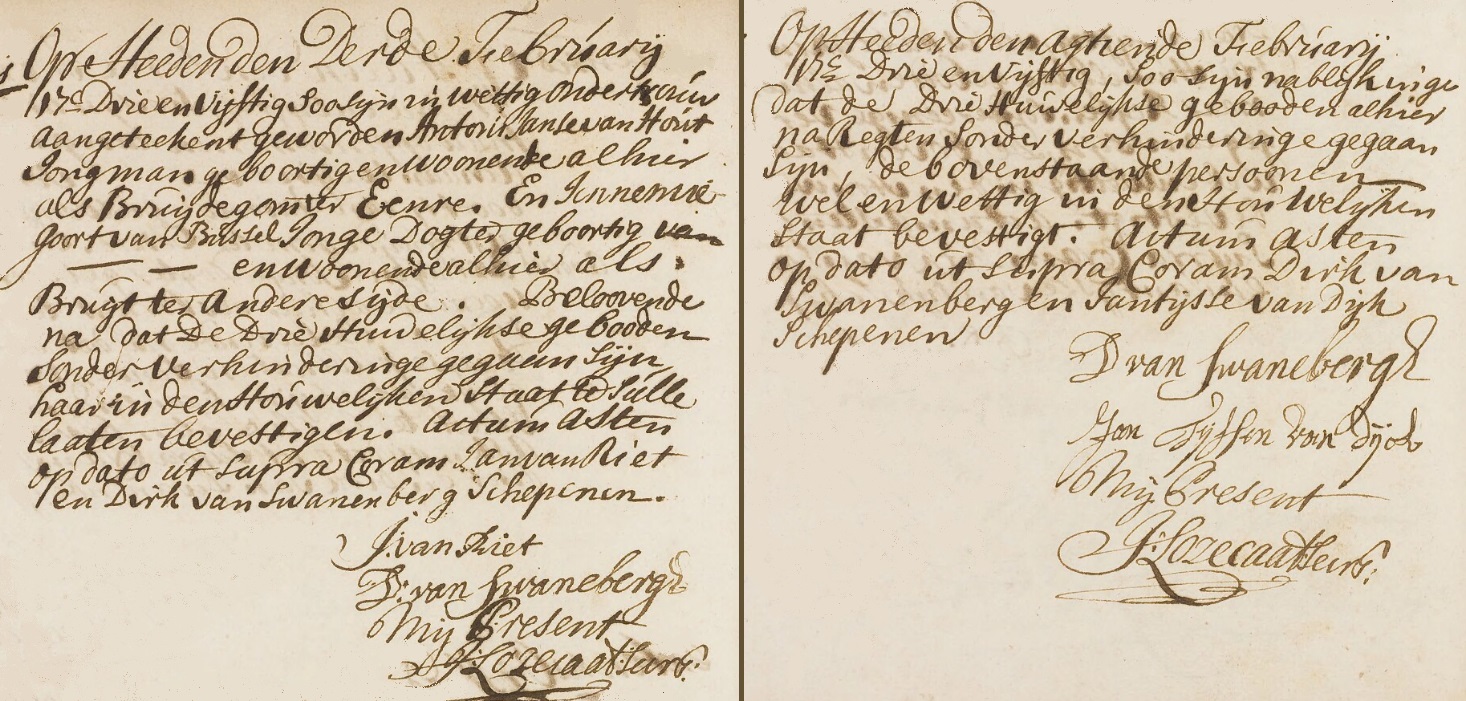 Op Heeden den Derde Februarij
17c Drie en Vijftig Soo Sijn in Wettig Ondertrouw
aangeteekent geworden Antoni Janse van Hout
Jongman geboortig en Woonende alhier
als Bruijdegom ter Eenre. En Jennemie
Goort van Bussel Jonge Dogter geboortig van
— — en Woonende alhier als
Bruijt ter andere Sijde. Beloovende
na dat De Drie Huwelijkse gebooden
Sonder Verhinderinge gegaan Sijn
haar in den Houwelijken Staat te Sulle
laaten bevestigen. Actum Asten
op dato ut Supra Coram Jan van Riet
en Dirk van Swanenberg Schepenen.
J. van Riet
D: van Swanebergh
Mij Present
Op Heeden den agtiende Februarij
17c Drie en Vijftig, Soo Sijn na blijkinge
dat de Drie Huwelijkse gebooden alhier
na Regten Sonder Verhinderinge gegaan
Sijn, de bovenstaande persoonen
Wel en Wettig in den Houwelijken
Staat bevestigt. Actum Asten
op dato ut Supra Coram Dirk van
Swanenberg en Jantijsse van Dijk
Schepenen
D van Swanebergh
Jan Tyssen van Dijck
Mij Present